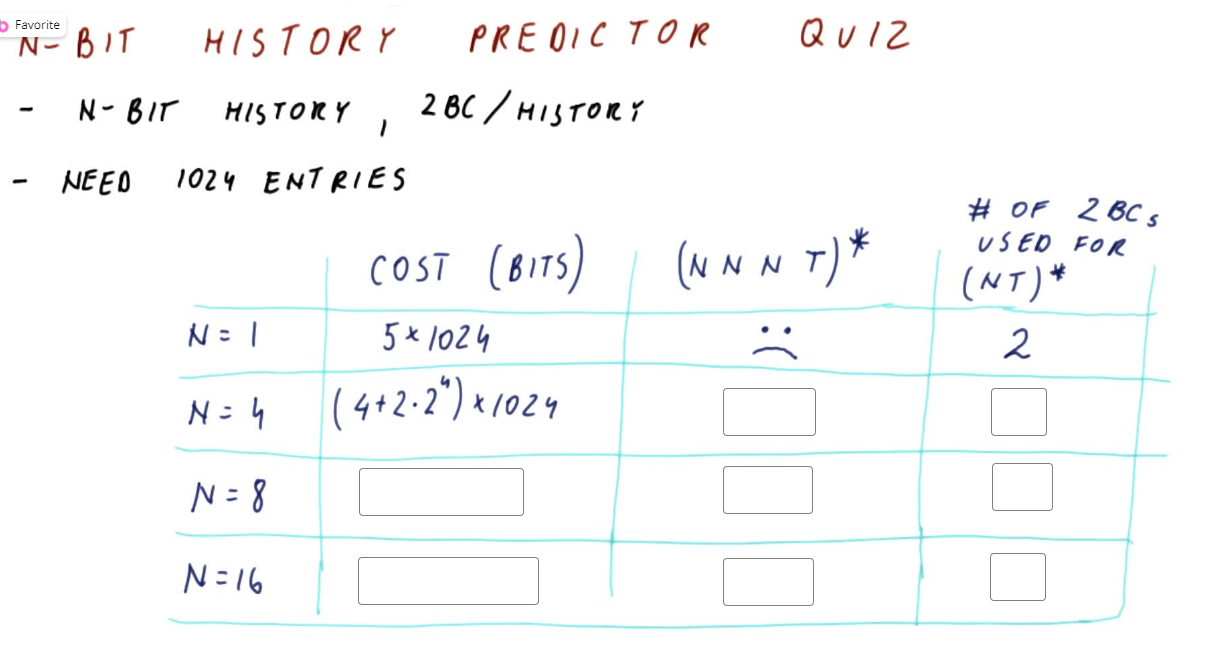 Favorite
N-BIT HISTORY PREDICTOR QUIZ
- N-BIT HISTORY, 2BC/HISTORY
- NEED 1024 ENTRIES
COST (BITS) (N N N T)* # OF 2BCs USED FOR (NT)*
N=1 5*1024 2
N=4 (4+2·2⁴)*1024
N=8
N=16